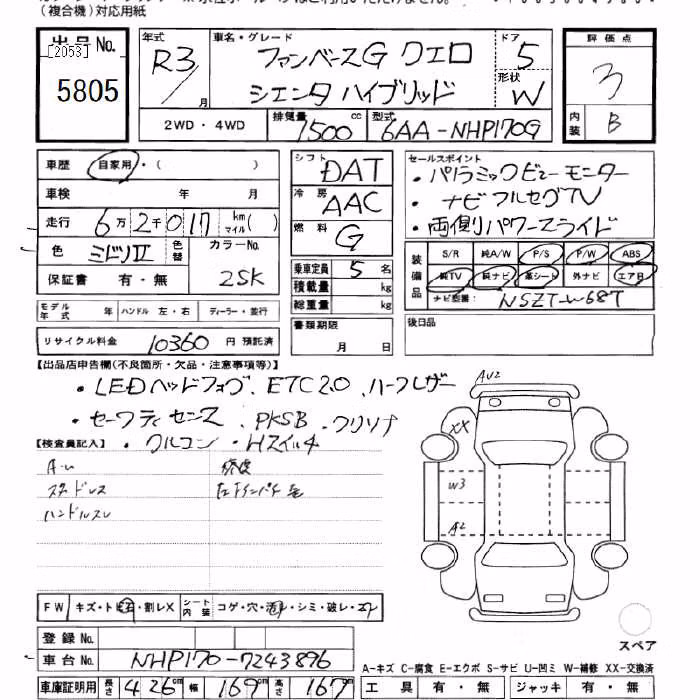 (複合機)対応用紙
出品No.
[2053]
5805
年式
R3/月
車名・グレード
ファンベースG クエロ
シエンタ ハイブリッド
ドア
5
形状
W
評価点
3
内装
B
2WD・4WD
排気量
1500 cc
型式
6AA-NHP170G
車歴 自家用・( )
車検 年 月
走行 6万2千017 km マイル( )
色 ミドリII 色替
カラーNo.
2SK
保証書 有・無
シフト DAT
冷房 AAC
燃料 G
乗車定員 5 名
積載量 kg
総重量 kg
書類期限
月 日
セールスポイント
・パノラミックビューモニター
・ナビフルセグTV
・両側パワースライド
装備品
S/R 純A/W P/S P/W ABS
純TV 純ナビ 革シート 外ナビ エアB
ナビ型番: NSZT-W68T
後日品
モデル年式 年 ハンドル 左・右 ディーラー・並行
リサイクル料金 10360 円 預託済
【出品店申告欄(不良箇所・欠品・注意事項等)】
・LEDヘッドフォグ、ETC2.0、ハーフレザー
・セーフティセンス、PKSB、クリソナ
・クルコン ・Hスイル4
【検査員記入】
ハンドルスレ
AU2
XX
W3
A2
FW キズ・トビ石・割レX
シート内装 コゲ・穴・汚レ・シミ・破レ・スレ
登録No.
車台No. NHP170-7243896
車庫証明用 長さ 426cm 幅 169cm 高さ 167cm
スペア
A-キズ C-腐食 E-エクボ S-サビ U-凹ミ W-補修 XX-交換済
工具 有・無 ジャッキ 有・無